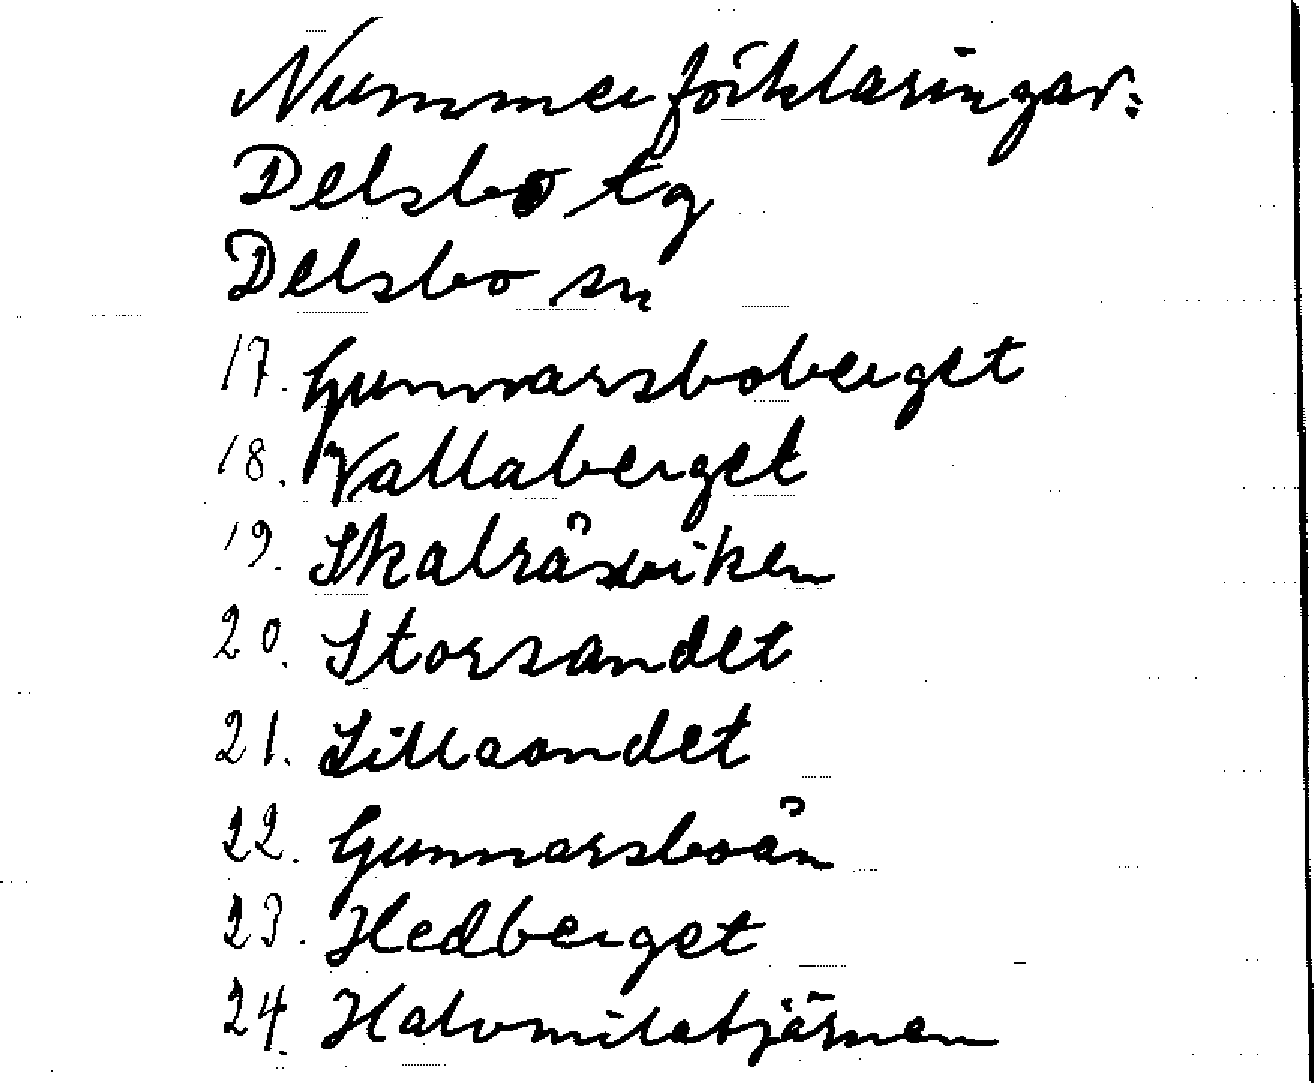 Nummerförklaringar:
Delsbo tg
Delsbo sn
17. Gunnarsboberget
18. Vallaberget
19. Skalråsviken
20. Storsandet
21. Lillsandet
22. Gunnarsboån
23. Hedberget
24. Halvmilatjärnen